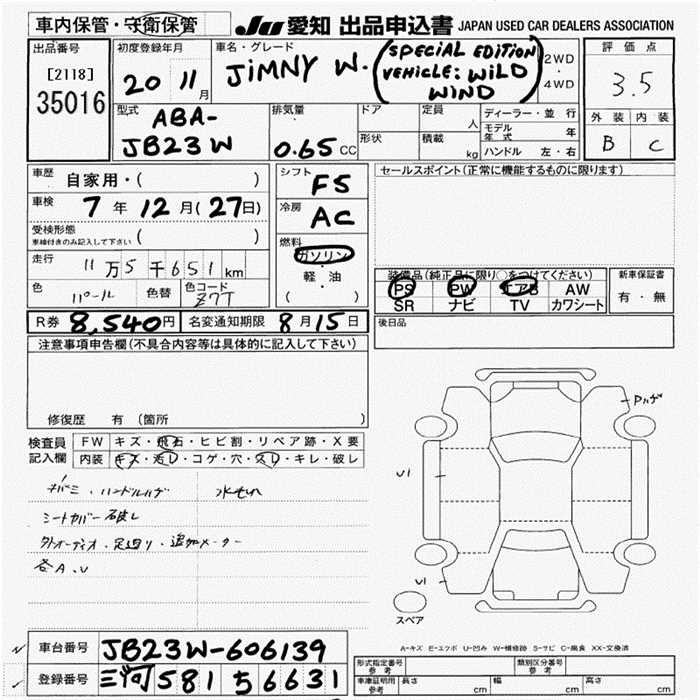 車内保管・守衛保管 JU 愛知 出品申込書 JAPAN USED CAR DEALERS ASSOCIATION
出品番号 初度登録年月 車名・グレード 評価点
[2118] 20 11月 JIMNY W. (SPECIAL EDITION VEHICLE: WILD WIND) 2WD・4WD 3.5
35016
型式 排気量 ドア 定員 人 ディーラー・並行 外装 内装
ABA-JB23W 0.65 CC 形状 積載 kg モデル年式 年 B C
ハンドル 左・右
車歴 自家用・( ) シフト F5 セールスポイント(正常に機能するものに限ります)
車検 7年12月(27日) 冷房 AC
受検形態 ( )
車検付きのみ記入して下さい
燃料 ガソリン
軽・油
( )
走行 11万5千651km 装備品(純正品に限り○をつけてください) 新車保証書
色 パール 色替 色コード Z7T PS PW エアB AW 有・無
SR ナビ TV カワシート
R券 8,540円 名変通知期限 8月15日 後日品
注意事項申告欄(不具合内容等は具体的に記入して下さい)
修復歴 有(箇所 )
検査員 FW キズ・飛石・ヒビ割・リペア跡・X要
記入欄 内装 キズ・汚レ・コゲ・穴・スレ・キレ・破レ
ハンドルハゲ 水もれ
シートカバー 破レ
外オーディオ・足廻り・追加メーター
各A.U
Pハゲ
U1
U1
スペア
A-キズ E-エクボ U-凹み W-補修跡 S-サビ C-腐食 XX-交換済
車台番号 JB23W-606139
登録番号 三河 581 56631
形式指定番号 参考 類別区分番号 参考
車庫証明用 参考 長さ cm 幅 cm 高さ cm